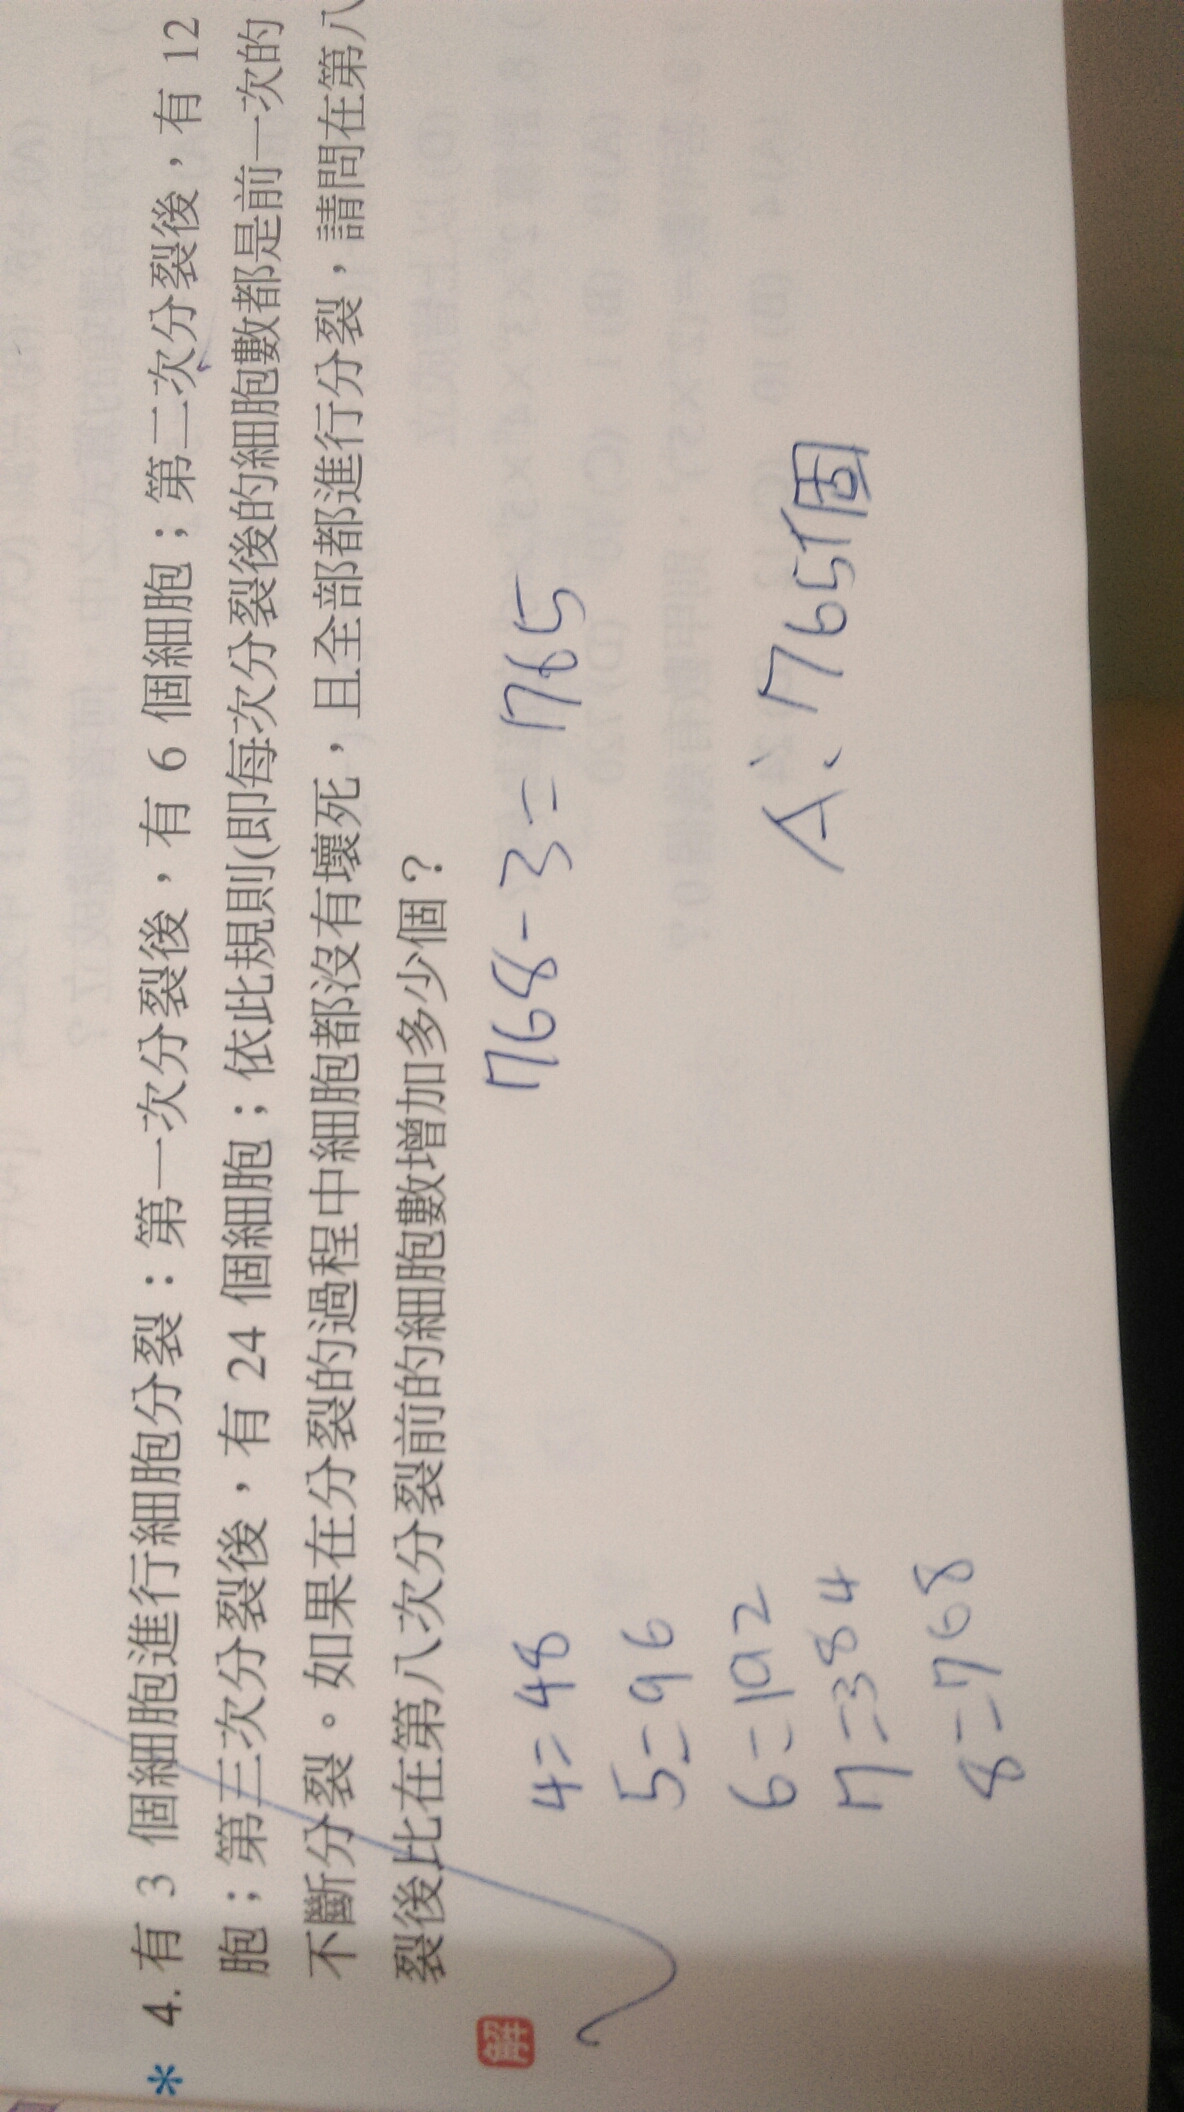 * 4. 有 3 個細胞進行細胞分裂：第一次分裂後，有 6 個細胞；第二次分裂後，有 12
胞；第三次分裂後，有 24 個細胞；依此規則(即每次分裂後的細胞數都是前一次的
不斷分裂。如果在分裂的過程中細胞都沒有壞死，且全部都進行分裂，請問在第八
裂後比在第八次分裂前的細胞數增加多少個？
解
4=48
5=96
6=192
7=384
8=768
768-3=765
A：765個